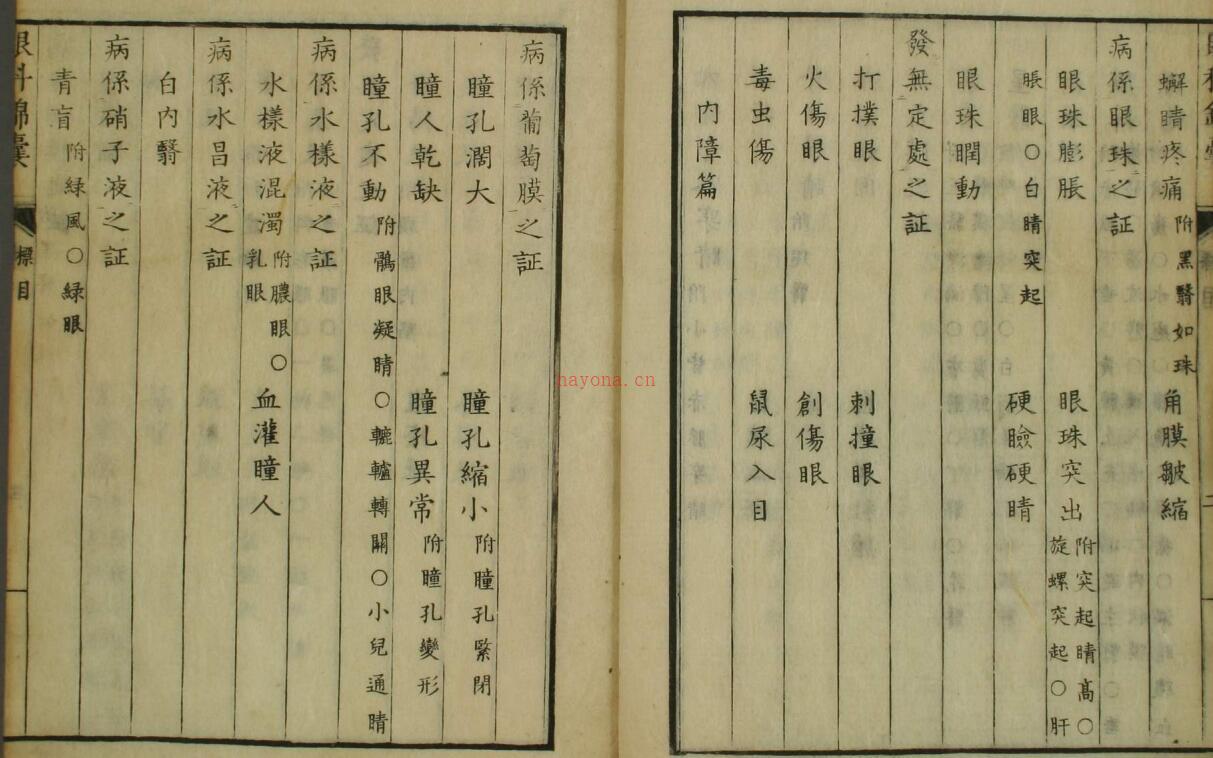 蠏睛疼痛 附黑翳如珠 角膜皺縮
病係眼珠之証
眼珠膨脹 眼珠突出 附突起睛高○旋螺突起○肝
脹眼○白睛突起 硬瞼硬睛
眼珠瞤動
發無定處之証
打撲眼 刺撞眼
火傷眼 創傷眼
毒虫傷 鼠尿入目
內障篇
病係葡萄膜之証
瞳孔濶大 瞳孔縮小 附瞳孔緊閉
瞳人乾缺 瞳孔異常 附瞳孔變形
瞳孔不動 附鶻眼凝睛○轆轤轉關○小兒通睛
病係水様液之証
水樣液混濁 附膿眼○乳眼 血灌瞳人
病係水昌液之証
白內翳
病係硝子液之証
青盲 附綠風○綠眼
眼科錦囊 標目
hayona.cn